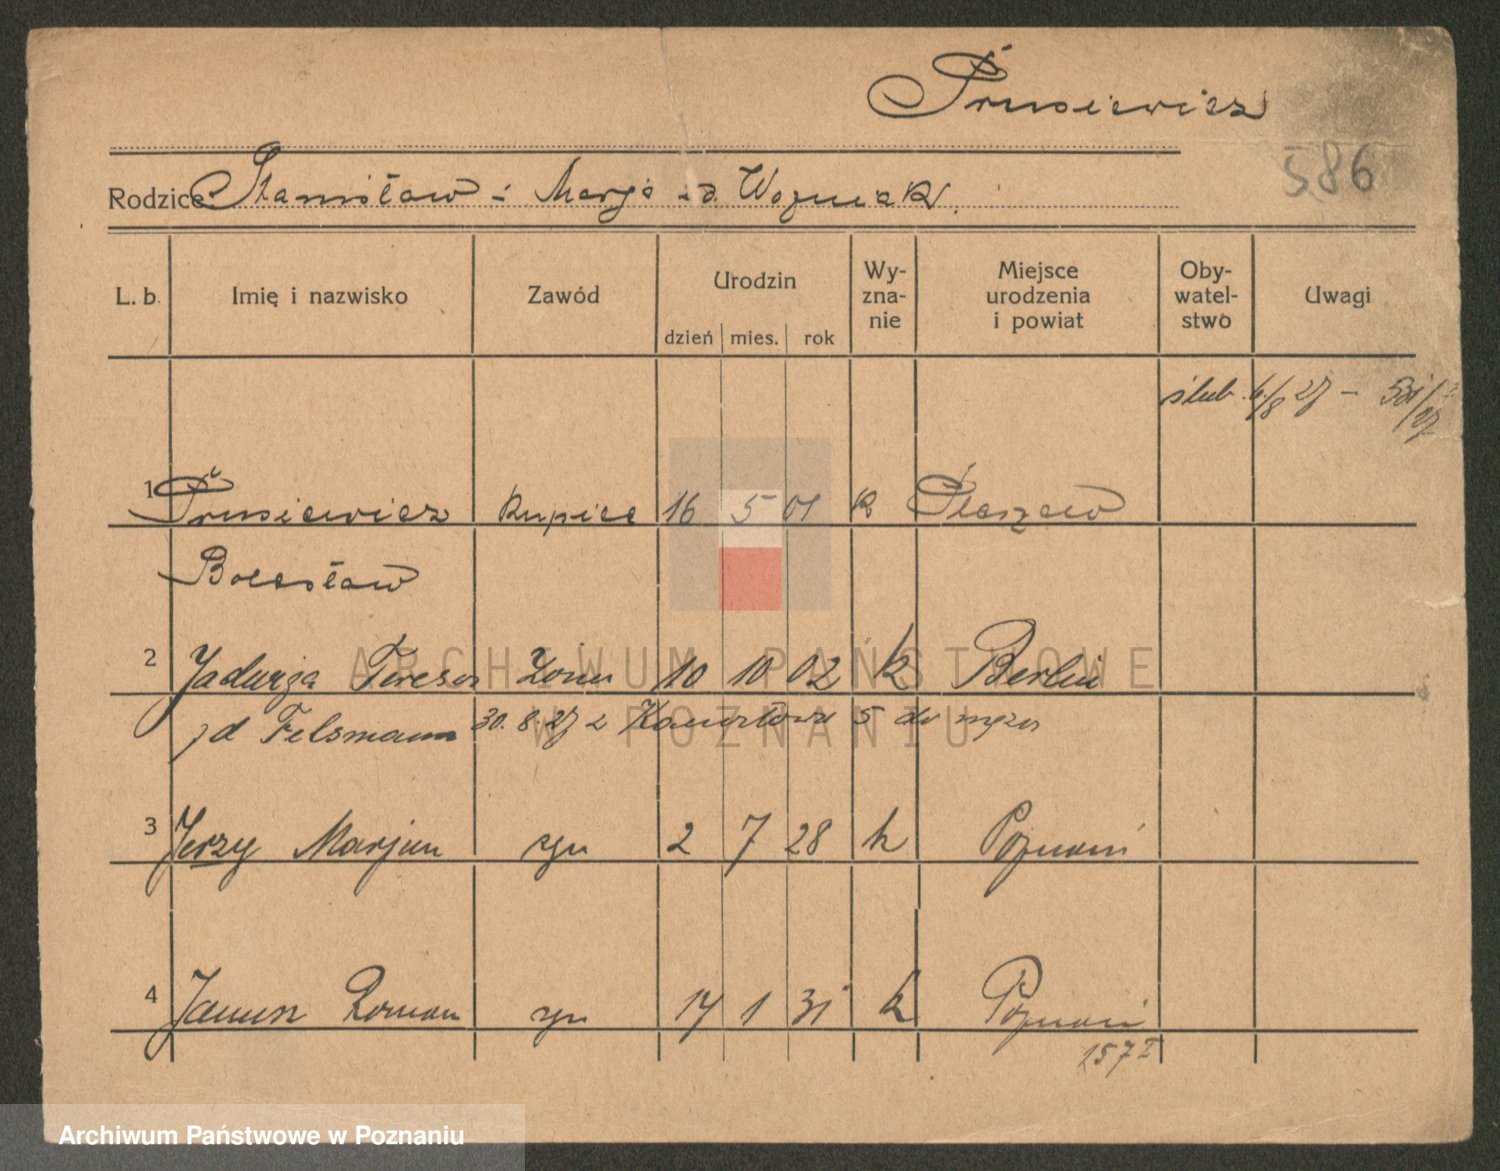 Prusiewicz
586
Rodzice Stanisław i Marja zd. Wozniak.
L. b. Imię i nazwisko Zawód Urodzin dzień mies. rok Wy-zna-nie Miejsce urodzenia i powiat Oby-watel-stwo Uwagi
ślub 6/8 27 -
1 Prusiewicz kupiec 16 5 01 k Pleszew
Bolesław
2 Jadwiga Teresa żona 10 10 02 k Berlin
zd Felsmann 30. 8. 27 z 5 do męża
3 Jerzy Marjan syn 2 7 28 k Poznań
4 Janusz Roman syn 14 1 31 k Poznań
157 I
ARCHIWUM PAŃSTWOWE
W POZNANIU
Archiwum Państwowe w Poznaniu